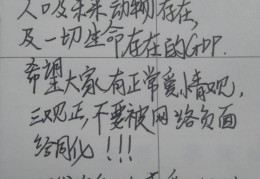 人口及未来动物存在,
及一切生命存在的GDP.
希望大家有正常爱情观,
三观正,不要被网络负面
给同化!!!